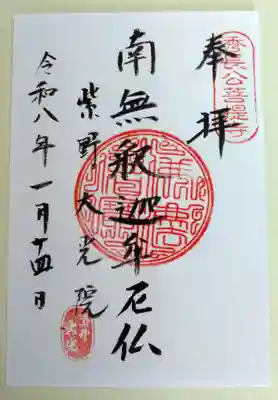 秀長公菩提寺
奉拝
南無釈迦牟尼仏
紫野大光院
令和八年一月十四日